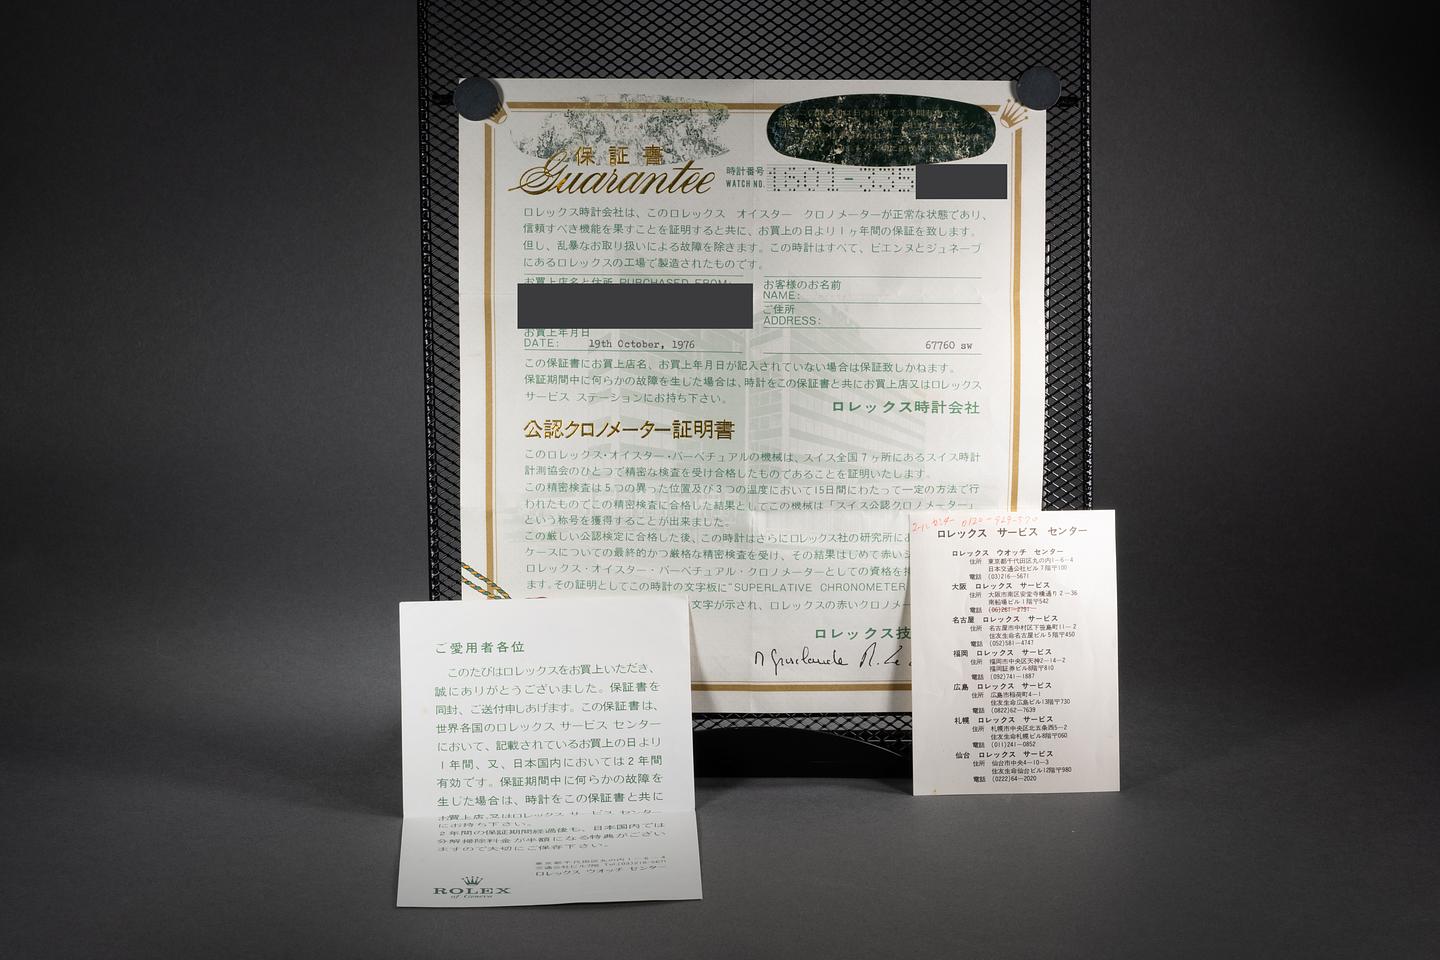 保証書
Guarantee
時計番号
WATCH NO. 1601-335
ロレックス時計会社は、このロレックス オイスター クロノメーターが正常な状態であり、
信頼すべき機能を果すことを証明すると共に、お買上の日より1ヶ年間の保証を致します。
但し、乱暴なお取り扱いによる故障を除きます。この時計はすべて、ビエンヌとジュネーブ
にあるロレックスの工場で製造されたものです。
お買上店名と住所 PURCHASED FROM:
お客様のお名前
NAME:
ご住所
ADDRESS:
お買上年月日
DATE: 19th October, 1976
67760 sw
この保証書にお買上店名、お買上年月日が記入されていない場合は保証致しかねます。
保証期間中に何らかの故障を生した場合は、時計をこの保証書と共にお買上店又はロレックス
サービス ステーションにお持ち下さい。
ロレックス時計会社
公認クロノメーター証明書
このロレックス・オイスター・パーペチュアルの機械は、スイス全国7ヶ所にあるスイス時計
計測協会のひとつで精密な検査を受け合格したものであることを証明いたします。
この精密検査は5つの異った位置及び3つの温度において15日間にわたって一定の方法で行
われたものでこの精密検査に合格した結果としてこの機械は「スイス公認クロノメーター」
という称号を獲得することが出来ました。
この厳しい公認検定に合格した後、この時計はさらにロレックス社の研究所に
ケースについての最終的かつ厳格な精密検査を受け、その結果はじめて赤い
ロレックス・オイスター・パーペチュアル・クロノメーターとしての資格を
ます。その証明としてこの時計の文字板に"SUPERLATIVE CHRONOMETER
文字が示され、ロレックスの赤いクロノメー
ロレックス技
ご愛用者各位
このたびはロレックスをお買上いただき、
誠にありがとうございました。保証書を
同封、ご送付申しあげます。この保証書は、
世界各国のロレックス サービス センター
において、記載されているお買上の日より
1年間、又、日本国内においては2年間
有効です。保証期間中に何らかの故障を
生じた場合は、時計をこの保証書と共に
お買上店、又はロレックス サービス センター
にお持ち下さい。
2年間の保証期間経過後も、日本国内では
分解掃除料金が半額になる特典がござい
ますので大切にご保存下さい。
東京都千代田区丸の内1-6-4
交通公社ビル7階 Tel.(03)216-5671
ロレックス ウオッチ センター
ROLEX
of Geneva
コールセンター 0120-929-570
ロレックス サービス センター
ロレックス ウオッチ センター
住所 東京都千代田区丸の内1-6-4
日本交通公社ビル7階〒100
電話 (03)216-5671
大阪 ロレックス サービス
住所 大阪市南区安堂寺橋通り2-36
南船場ビル1階〒542
電話 (06)261-2791
名古屋 ロレックス サービス
住所 名古屋市中村区下笹島町11-2
住友生命名古屋ビル5階〒450
電話 (052)581-4747
福岡 ロレックス サービス
住所 福岡市中央区天神2-14-2
福岡証券ビル8階〒810
電話 (092)741-1887
広島 ロレックス サービス
住所 広島市稲荷町4-1
住友生命広島ビル13階〒730
電話 (0822)62-7639
札幌 ロレックス サービス
住所 札幌市中央区北五条西5-2
住友生命札幌ビル8階〒060
電話 (011)241-0852
仙台 ロレックス サービス
住所 仙台市中央4-10-3
住友生命仙台ビル12階〒980
電話 (0222)64-2020